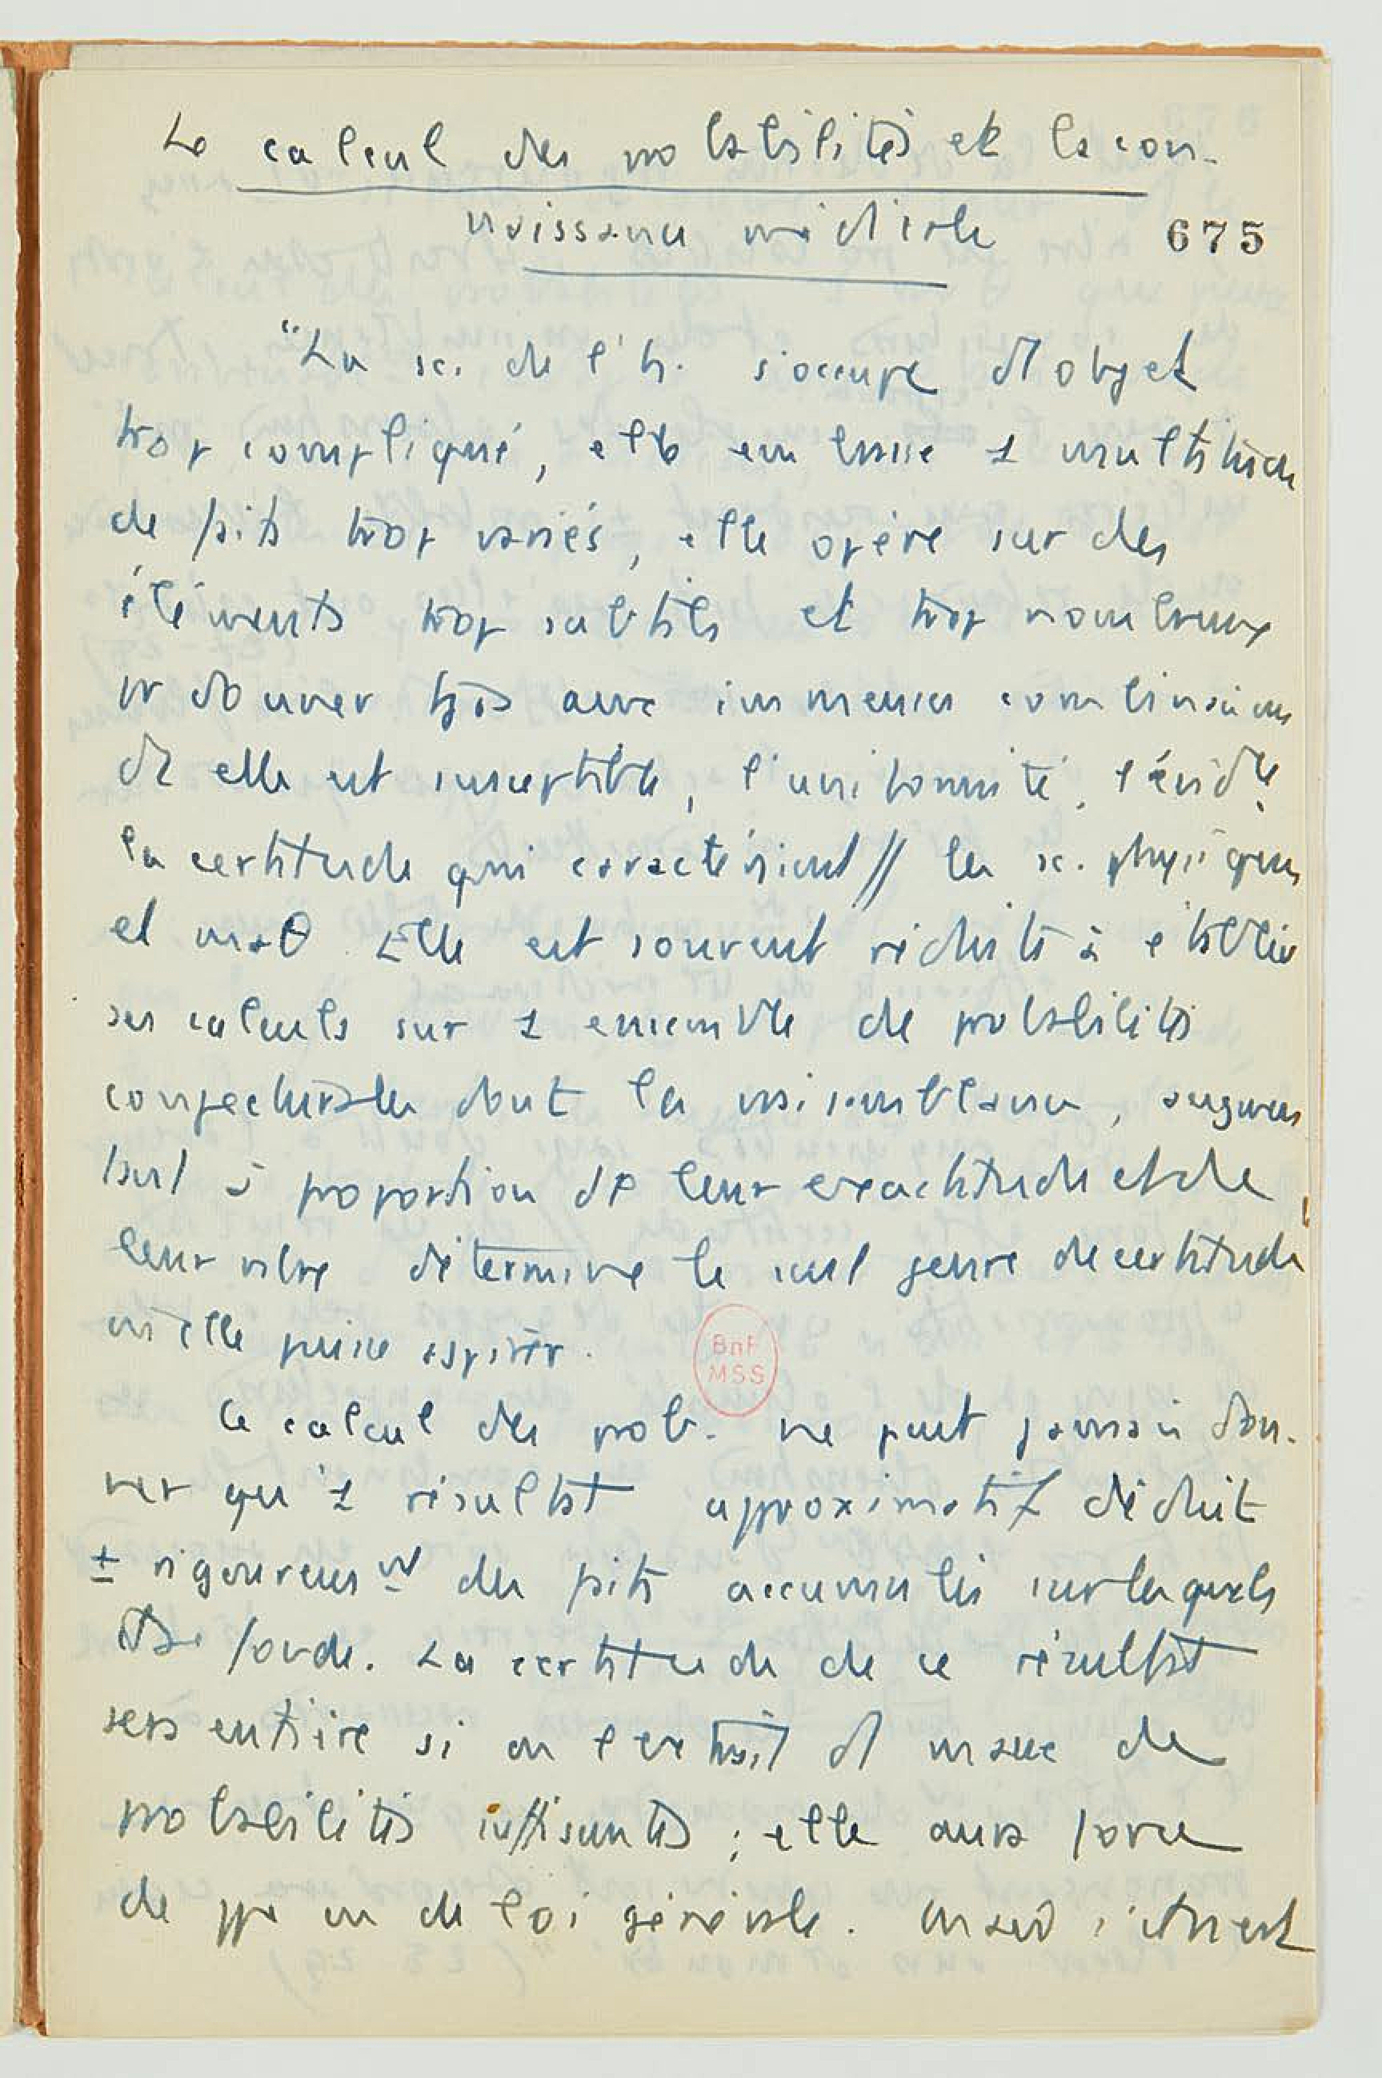 Le calcul des probabilités et la con-
naissance médicale
675
"La sc. de l'h. s'occupe d'1 objet
trop compliqué, elle embrasse 1 multitude
de faits trop variés, elle opère sur des
éléments trop subtils et trop nombreux
pr donner tjrs aux immenses combinaisons
dt elle est susceptible, l'uniformité, l'évidce,
la certitude qui caractérisent // les sc. physiques
et math. Elle est souvent réduite à établir
ses calculs sur 1 ensemble de probabilités
conjecturales dont la vraisemblance, augmen
tant à proportion de leur exactitude et de
leur nbre détermine le seul genre de certitude
où elle puisse aspirer.
BnF
MSS
Ce calcul des prob. ne peut jamais don-
ner qu'1 résultat approximatif déduit
± rigoureusᵗ des faits accumulés sur lesquels
il se fonde. La certitude de ce résultat
sera entière si on l'extrait d'1 masse de
probabilités suffisantes ; elle aura force
de ppe ou de loi générale.